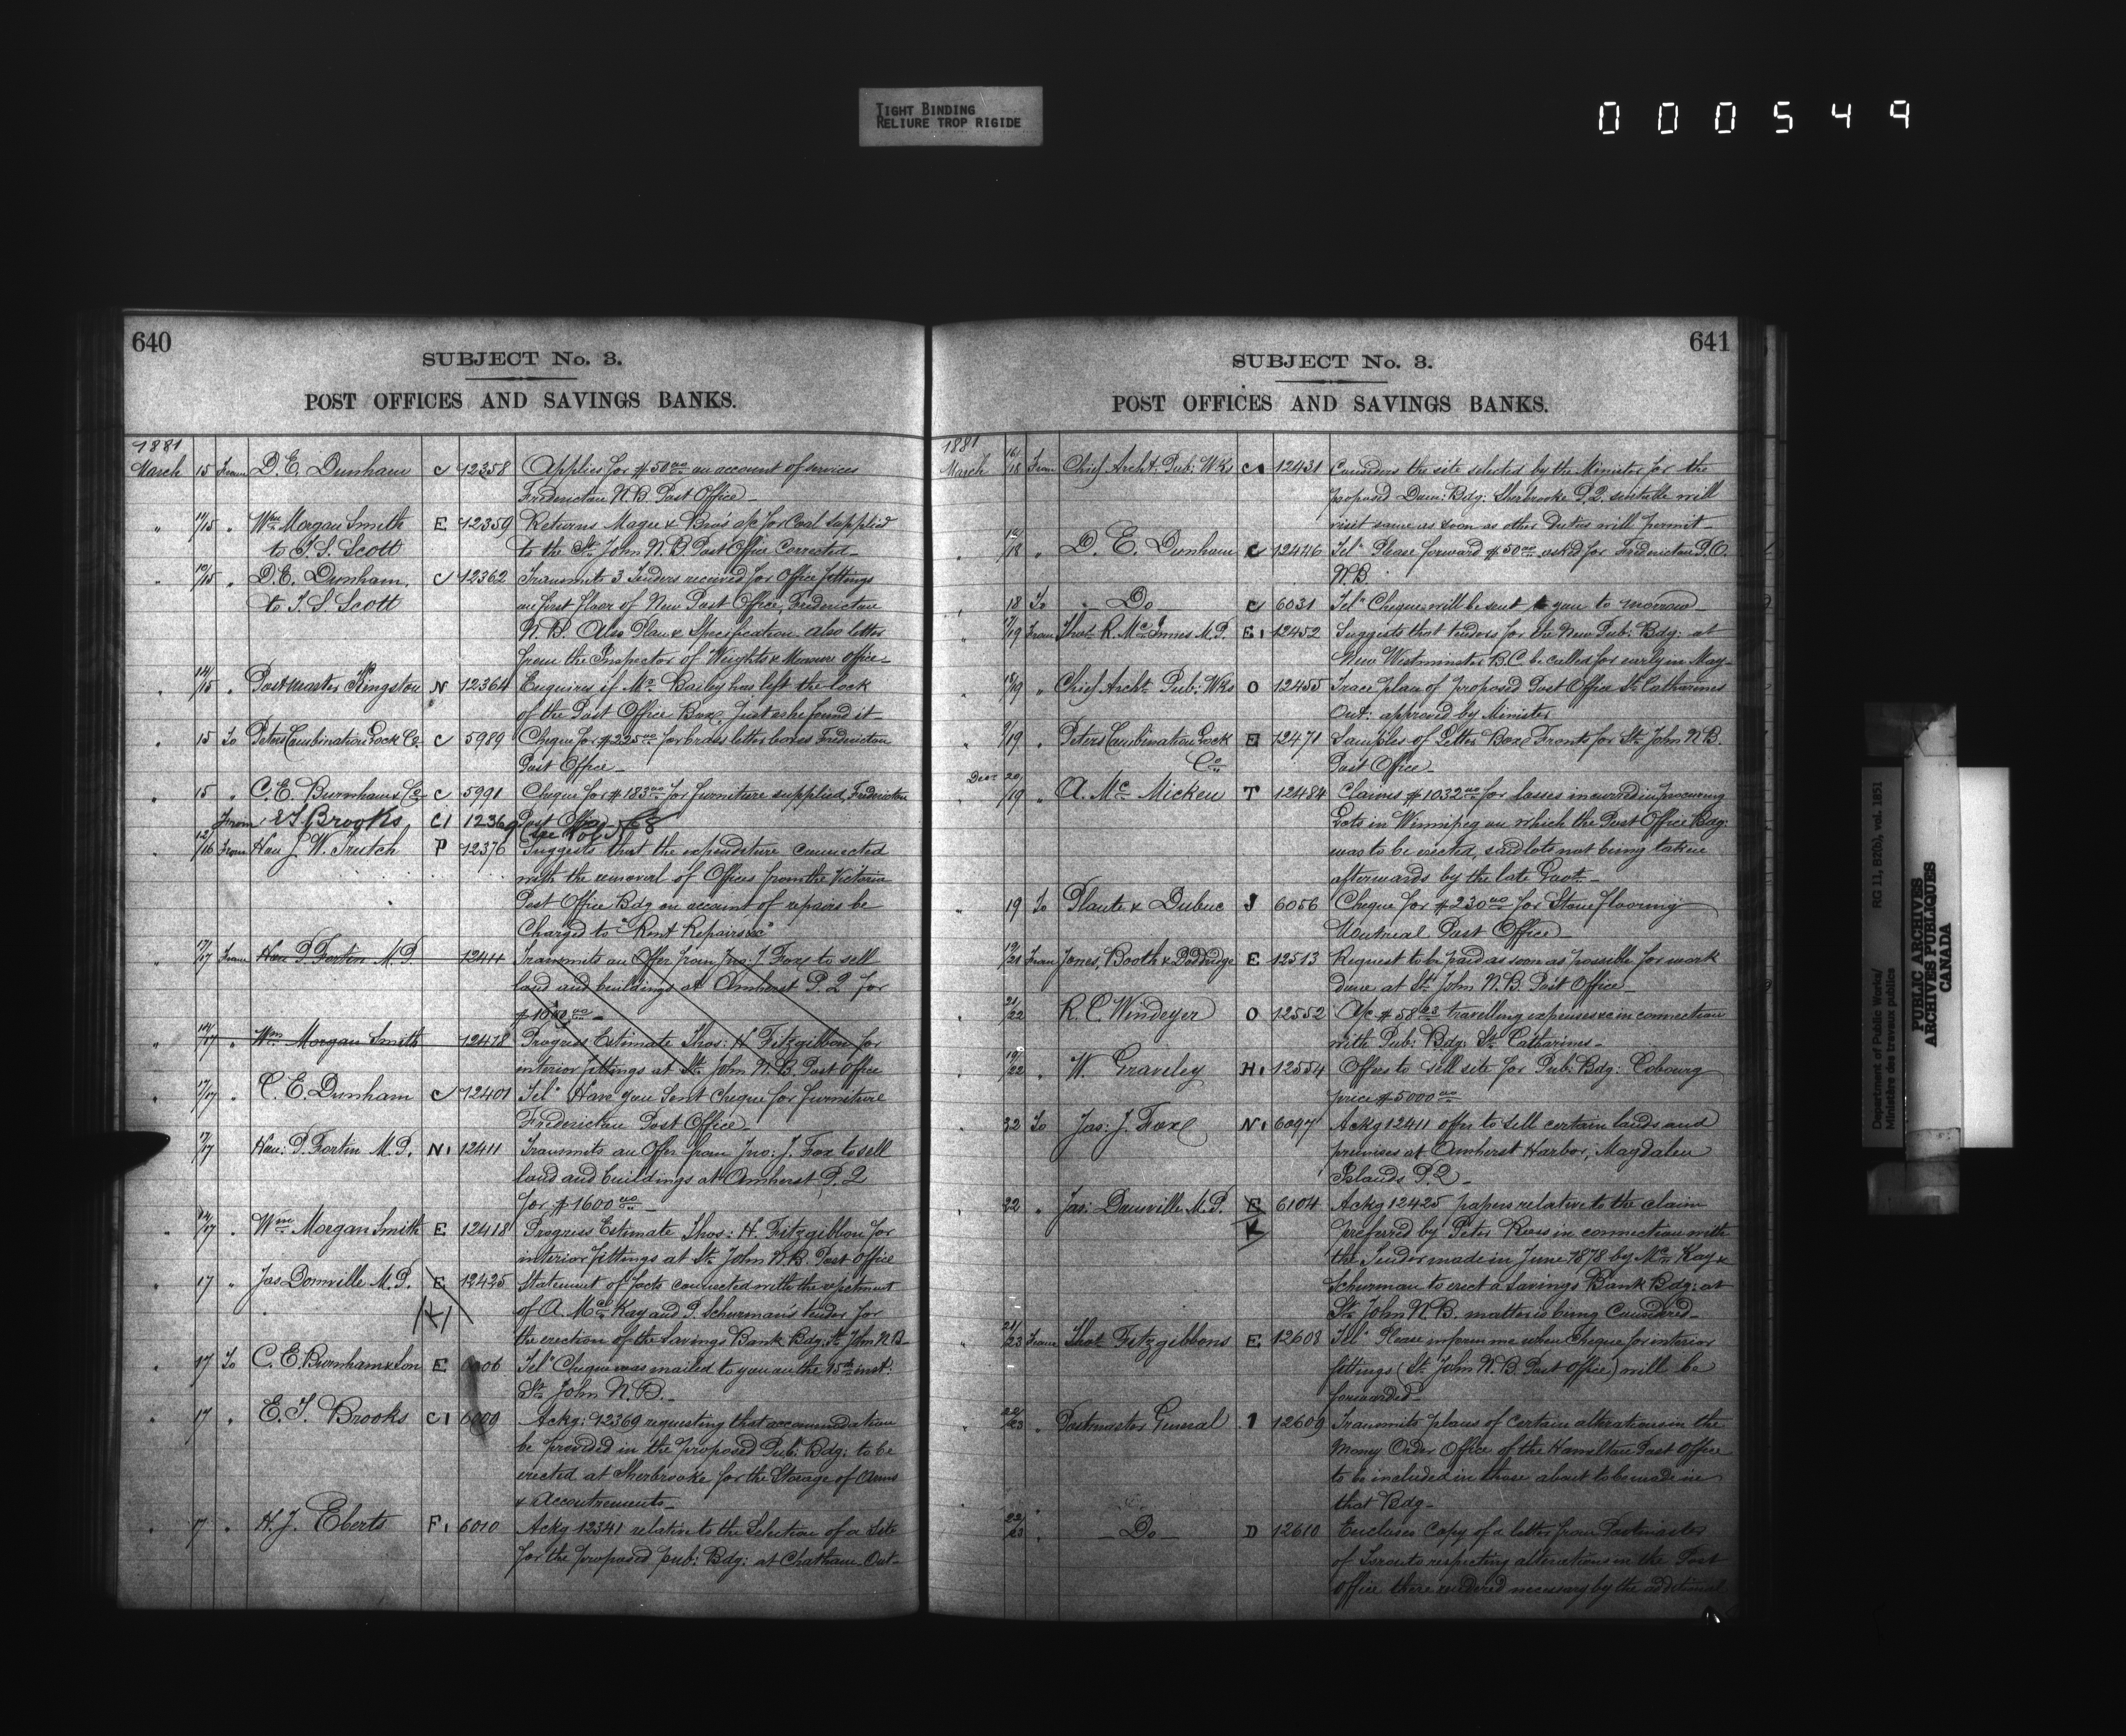 TIGHT BINDING
RELIURE TROP RIGIDE
000549
640
SUBJECT No. 3.
POST OFFICES AND SAVINGS BANKS.
1881
March 15 From D. E. Dunham C 12358 Applies for $50.00 on account of services
Fredericton N.B. Post Office
" 11/15 " Wm Morgan Smith E 12359 Returns Magee & Bro's a/c for Coal supplied
to T. S. Scott to the St. John N.B. Post Office Corrected
" 10/15 " D. E. Dunham C 12362 Transmits 3 Tenders received for Office fittings
to T. S. Scott on first floor of New Post Office, Fredericton
N.B. Also Plan & Specification also letter
from the Inspector of Weights & Measure office
" 14/15 " Postmaster Kingston N 12364 Enquires if Mr. Bailey has left the lock
of the Post Office Box just as he found it
" 15 To Peters Combination Lock Co. C 5989 Cheque for $225.00 for brass letter boxes Fredericton
Post Office
" 15 " C. E. Burnham & Co C 5991 Cheque for $183.00 for furniture supplied Fredericton
Post Office
From E T Brooks C1 12369 (see fol 563
" 12/16 From Hon J. W. Trutch P 12376 Suggests that the expenditure connected
with the removal of Offices from the Victoria
Post Office Bdg on account of repairs be
Charged to "Rent Repairs &c"
" 17/17 From Hon P. Fortin M.P. 12411 Transmits an Offer from Jno. J. Fox to sell
land and buildings at Amherst P.Q. for
$1600.00
" 14/17 " Wm Morgan Smith 12418 Progress Estimate Thos: H. Fitzgibbon for
interior fittings at St. John N.B. Post Office
" 17/17 " C. E. Dunham C 12401 Tel" Have you sent Cheque for furniture
Fredericton Post Office
" 17/17 Hon: P. Fortin M.P. N1 12411 Transmits an Offer from Jno: J. Fox to sell
land and buildings at Amherst P.Q
for $1600.00
" 14/17 " Wm Morgan Smith E 12418 Progress Estimate Thos: H. Fitzgibbon for
interior fittings at St. John N.B. Post Office
" 17 " Jas Domville M.P. E 12425 Statement of facts connected with the rejectment
K of A. McKay and P. Schurman's tender for
the erection of the Savings Bank Bdg: St. John N.B.
" 17 To C. E. Burnham & Son E 6006 Tel" Cheque was mailed to you on the 15th inst:
St. John N.B.
" 17 " E. T. Brooks C1 6009 Ackg: 12369 requesting that accommodation
be provided in the proposed Pub: Bdg: to be
erected at Sherbrooke for the Storage of Arms
& Accoutrements
" 17 " H. J. Eberts F1 6010 Ackg 12341 relative to the Selection of a site
for the proposed pub: Bdg: at Chatham Ont
641
SUBJECT No. 3.
POST OFFICES AND SAVINGS BANKS.
1881
March 16/18 From Chief Archt. Pub: Wks C1 12431 Considers the site selected by the Minister for the
proposed Dom: Bdg: Sherbrooke P.Q. suitable will
visit same as soon as other Duties will permit
" 18 " D. E. Dunham C 12446 Tel" Please forward $50.00 asked for Fredericton P.O.
N.B.
" 18 To Do C 6031 Tel" Cheque will be sent to you to morrow
" 17/19 From Thos R. McInnes M.P. E1 12452 Suggests that tenders for the New Pub: Bdg: at
New Westminster B.C. be called for early in May
" 18/19 " Chief Archt. Pub: Wks O 12455 Trace plan of proposed Post Office St. Catharines
Ont: approved by Minister
" 9/19 " Peters Combination Lock E 12471 Samples of Letter Box Fronts for St. John N.B.
Co Post Office
Decr 20/19 " A. McMicken T 12484 Claims $1032.00 for losses incurred in procuring
Lots in Winnipeg on which the Post Office Bdg:
was to be erected, said lots not being taken
afterwards by the late Govt.
" 19 To Plante & Dubuc J 6056 Cheque for $230.00 for Stone flooring
Montreal Post Office
" 19/21 From Jones, Booth & Doddridge E 12513 Request to be paid as soon as possible for work
done at St. John N.B. Post Office
" 21/22 R. C. Windeyer O 12552 A/c $58.63 travelling expenses &c in connection
with Pub: Bdg: St. Catharines
" 19/22 " W. Graveley H1 12554 Offers to sell site for Pub: Bdg: Cobourg
price $5000.00
" 22 To Jas: J. Fox N1 6097 Ackg 12411 offer to sell certain lands and
premises at Amherst Harbor, Magdalen
Islands P.Q.
" 22 " Jas: Domville M.P. E 6104 Ackg 12425 papers relative to the claim
K preferred by Peter Ross in connection with
the Tender made in June 1878 by McKay &
Schurman to erect a Savings Bank Bdg: at
St. John N.B. matter is being Considered
" 21/23 From Thos Fitzgibbons E 12608 Tel" Please inform me when Cheque for interior
fittings (St. John N.B. Post Office) will be
forwarded
" 22/23 " Postmaster General I 12609 Transmits plans of certain alterations in the
Money Order Office of the Hamilton Post Office
to be included in those about to be made in
that Bdg
" 22/23 " Do D 12610 Encloses Copy of a letter from Postmaster
of Toronto respecting alterations in the Post
Office there rendered necessary by the additional
Department of Public Works/
Ministère des travaux publics
RG 11, B2(b), vol. 1851
PUBLIC ARCHIVES
ARCHIVES PUBLIQUES
CANADA